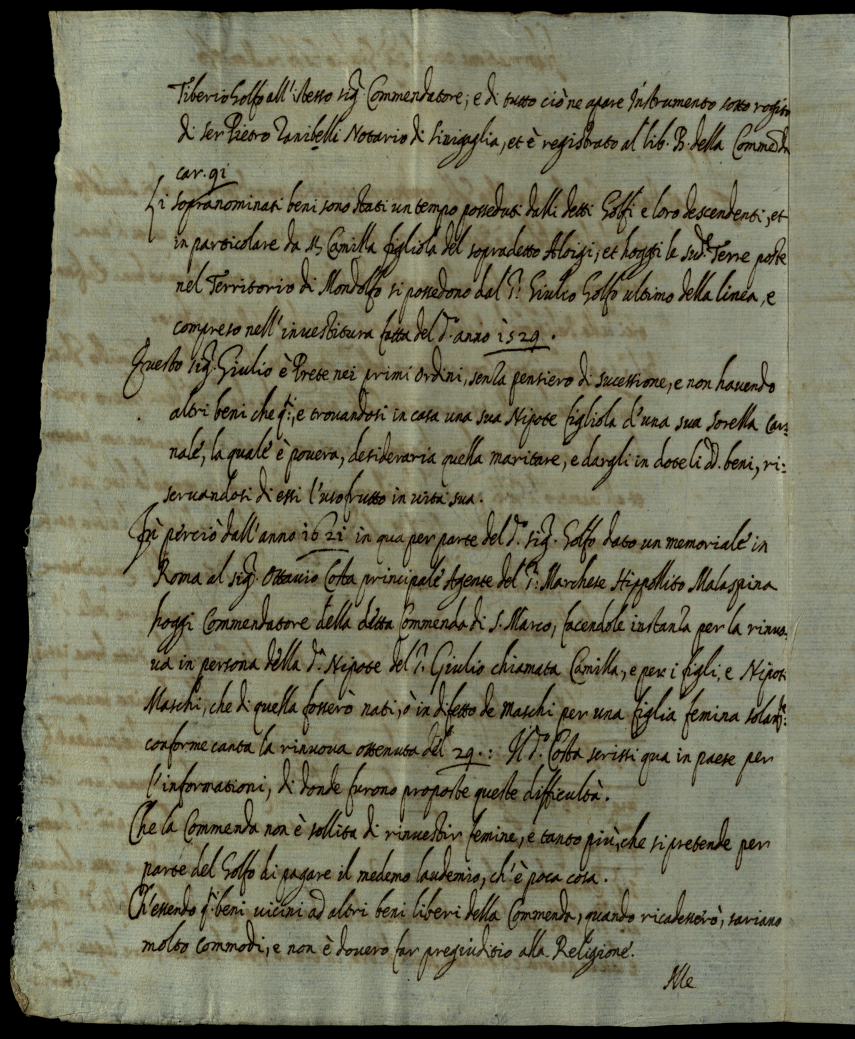 Tiberio Golfo all'istesso sig.r Commendatore; e di tutto ciò ne apare Instrumento sotto rogito
di ser Pietro Zanibelli Notario di Sinigaglia, et è registrato al lib. B. della Commenda
car. 91
Li sopranominati beni sono stati un tempo posseduti dalli detti Golfi e loro descendenti, et
in particolare da Camilla figliola del sopradetto Aloigi; et hoggi le sud.e Terre poste
nel Territorio di Mondolfo si possedono dal S.r Giulio Golfo ultimo della linea, e
compreso nell'investitura fatta del d.o anno 1529.
Questo sig.r Giulio è Prete nei primi ordini, senza pensiero di sucessione, e non havendo
altri beni che q.i, e trovandosi in casa una sua Nipote figliola d'una sua sorella Car=
nale, la quale è povera, desideraria quella maritare, e dargli in dote li dd. beni, ri=
servandosi di essi l'usofrutto in vita sua.
Fù perciò dall'anno 1621 in qua per parte del d.o sig.r Golfo dato un memoriale in
Roma al sig.r Ottavio Costa principale Agente del S.r Marchese Hippolito Malaspina
hoggi Commendatore della detta Commenda di S. Marco, facendole instanza per la rinuo=
va in persona della d.a Nipote del S.r Giulio chiamata Camilla, e per i figli, e Nipoti
Maschi, che di quella fosserò nati, ò in difetto de maschi per una figlia femina solam.te
conforme canta la rinuova ottenuta del 29.: Il d.o Costa scrissi qua in paese per
l'informationi, di donde furono proposte queste difficultà.
Che la Commenda non è sollita di rinvestir femine, e tanto più, che si pretende per
parte del Golfo di pagare il medemo laudemio, ch'è poca cosa.
Ch'essendo q.i beni vicini ad altri beni liberi della Commenda, quando ricadesserò, sariano
molto commodi, e non è dovero far pregiuditio alla Religione.
Alle